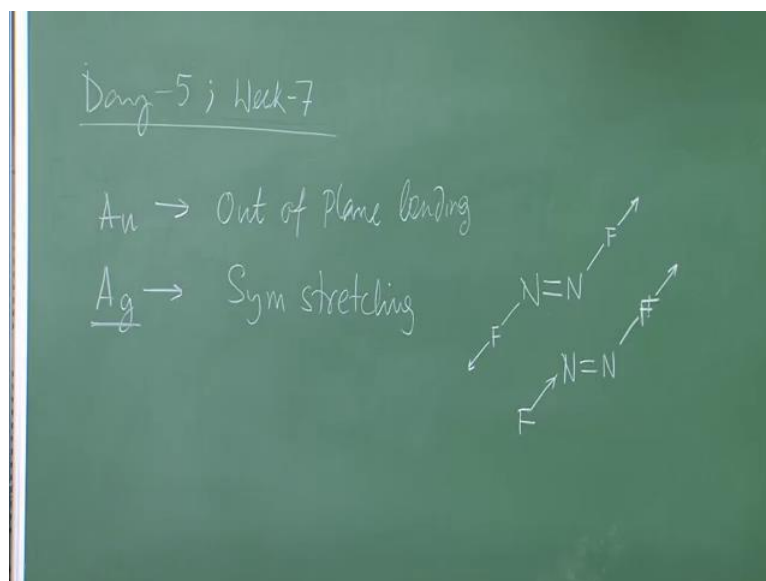 Day-5 ; Week-7
Au → Out of Plane bending
Ag → Sym stretching
F
N=N
F
F
N=N
F